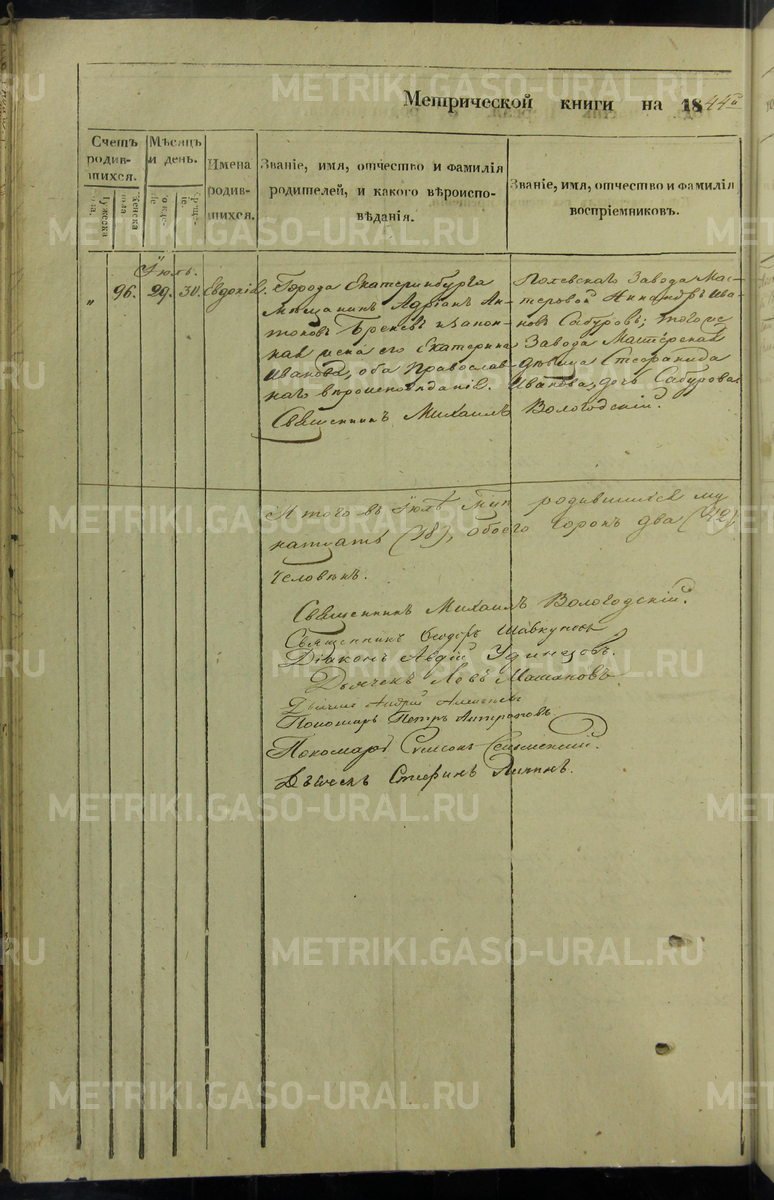 METRIKI.GASO-URAL.RU
Метрической книги на 1844й
Счетъ родив-шихся.
Мѣсяцъ и день.
Имена родив-шихся.
Званіе, имя, отчество и фамилія родителей, и какого вѣроиспо-вѣданія.
Званіе, имя, отчество и фамилія воспріемниковъ.
Мужеска пола.
Женска пола
Іюль.
" 96. 29. 30. Евдокія.
Города Екатеринбурга
Мѣщанинъ Адріанъ Ан-
тоновъ и закон-
ная жена его Екатерина
Иванова, оба Православ-
наго вѣроисповѣданія.
Священникъ Михаилъ Вологодскій.
Завода Мас-
теровой Ива-
новъ Сабуровъ; того же
Завода Мастерская
дѣвица Стефанида
Иванова, дочь Сабурова.
Итого въ Іюлѣ родившихся му
натцать (18), обоего сорокъ два (42)
человѣкъ.
Священникъ Михаилъ Вологодскій.
Священникъ Ѳеодоръ Шавкуновъ
Діаконъ Авдій Удинцовъ.
Дьячекъ Левъ
Дьячекъ Андрей
Пономарь Петръ Антроповъ.
Пономарь Симеонъ
Дьячекъ Стефанъ